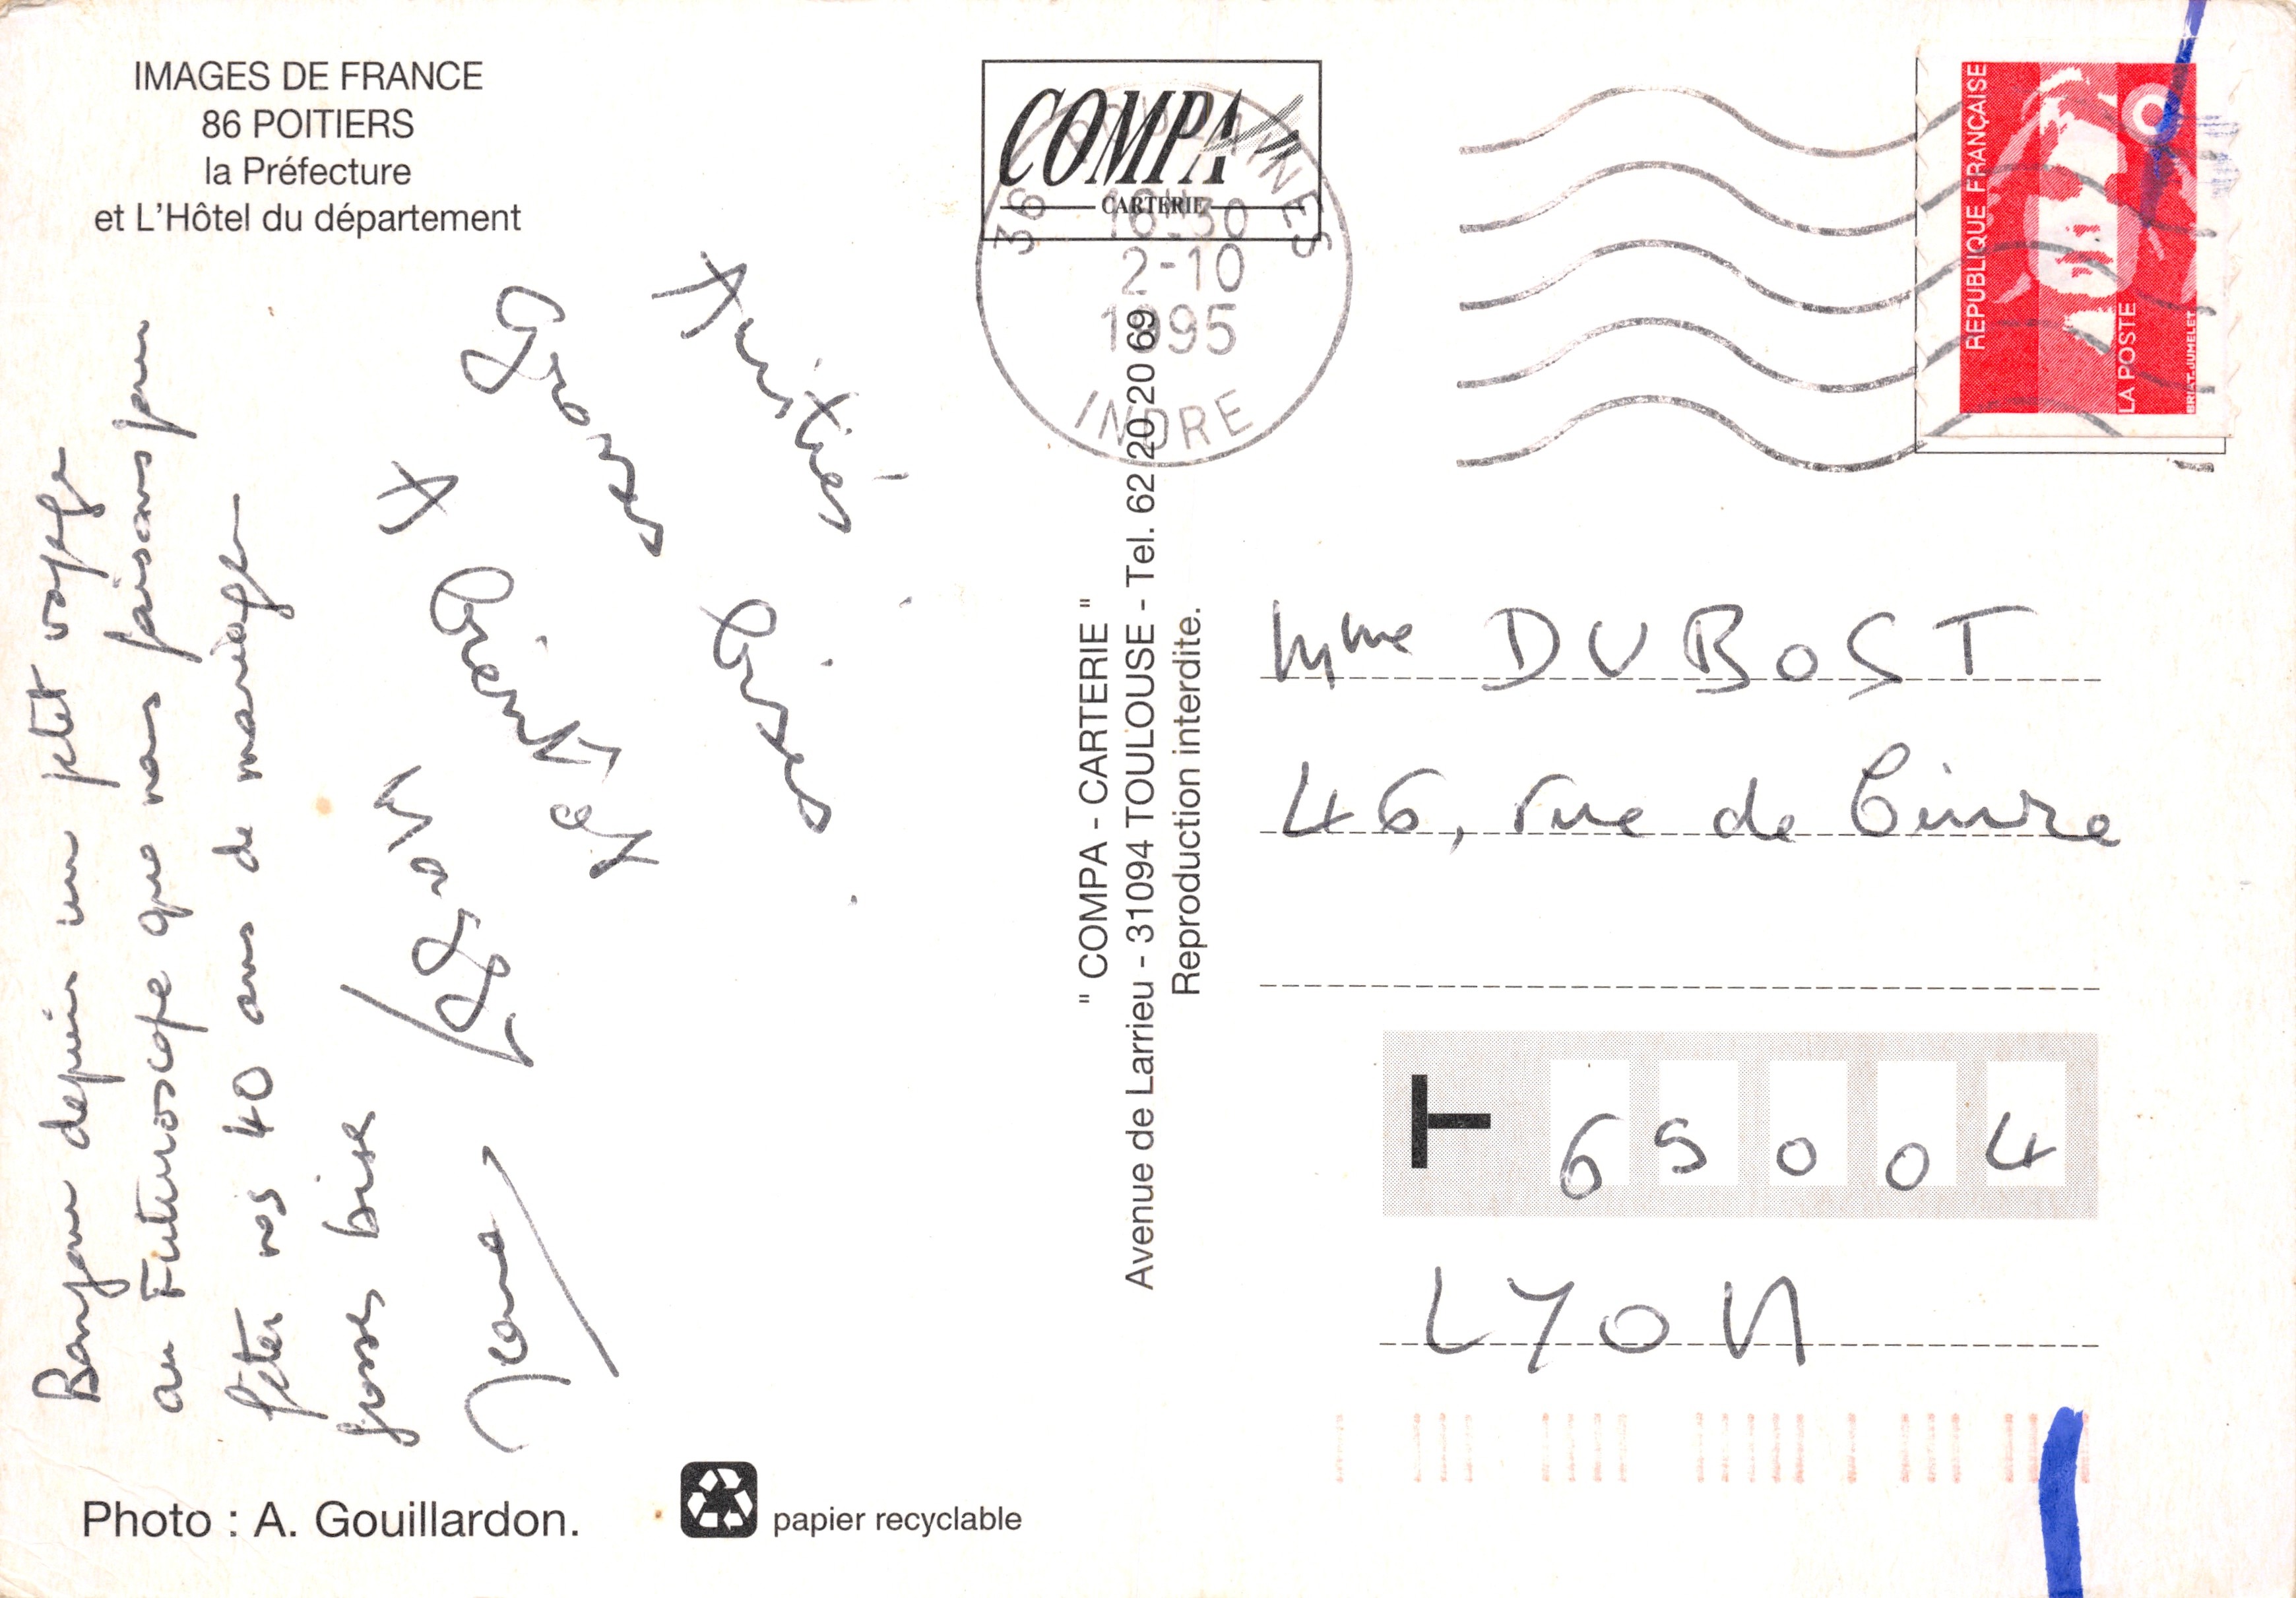 IMAGES DE FRANCE
86 POITIERS
la Préfecture
et L'Hôtel du département
COMPA
CARTERIE
36
16H30
2-10
1995
INDRE
REPUBLIQUE FRANÇAISE
LA POSTE
BRIAT-JUMELET
Bonjour depuis un petit voyage
au Futuroscope que nous faisons pour
fêter nos 40 ans de mariage
grosses bises
Amitiés
Grosses bises
A bientôt
" COMPA - CARTERIE "
Avenue de Larrieu - 31094 TOULOUSE - Tel. 62 20 20 69
Reproduction interdite.
Mme DUBOST
46, rue de Cuire
69004
LYON
Photo : A. Gouillardon.
papier recyclable